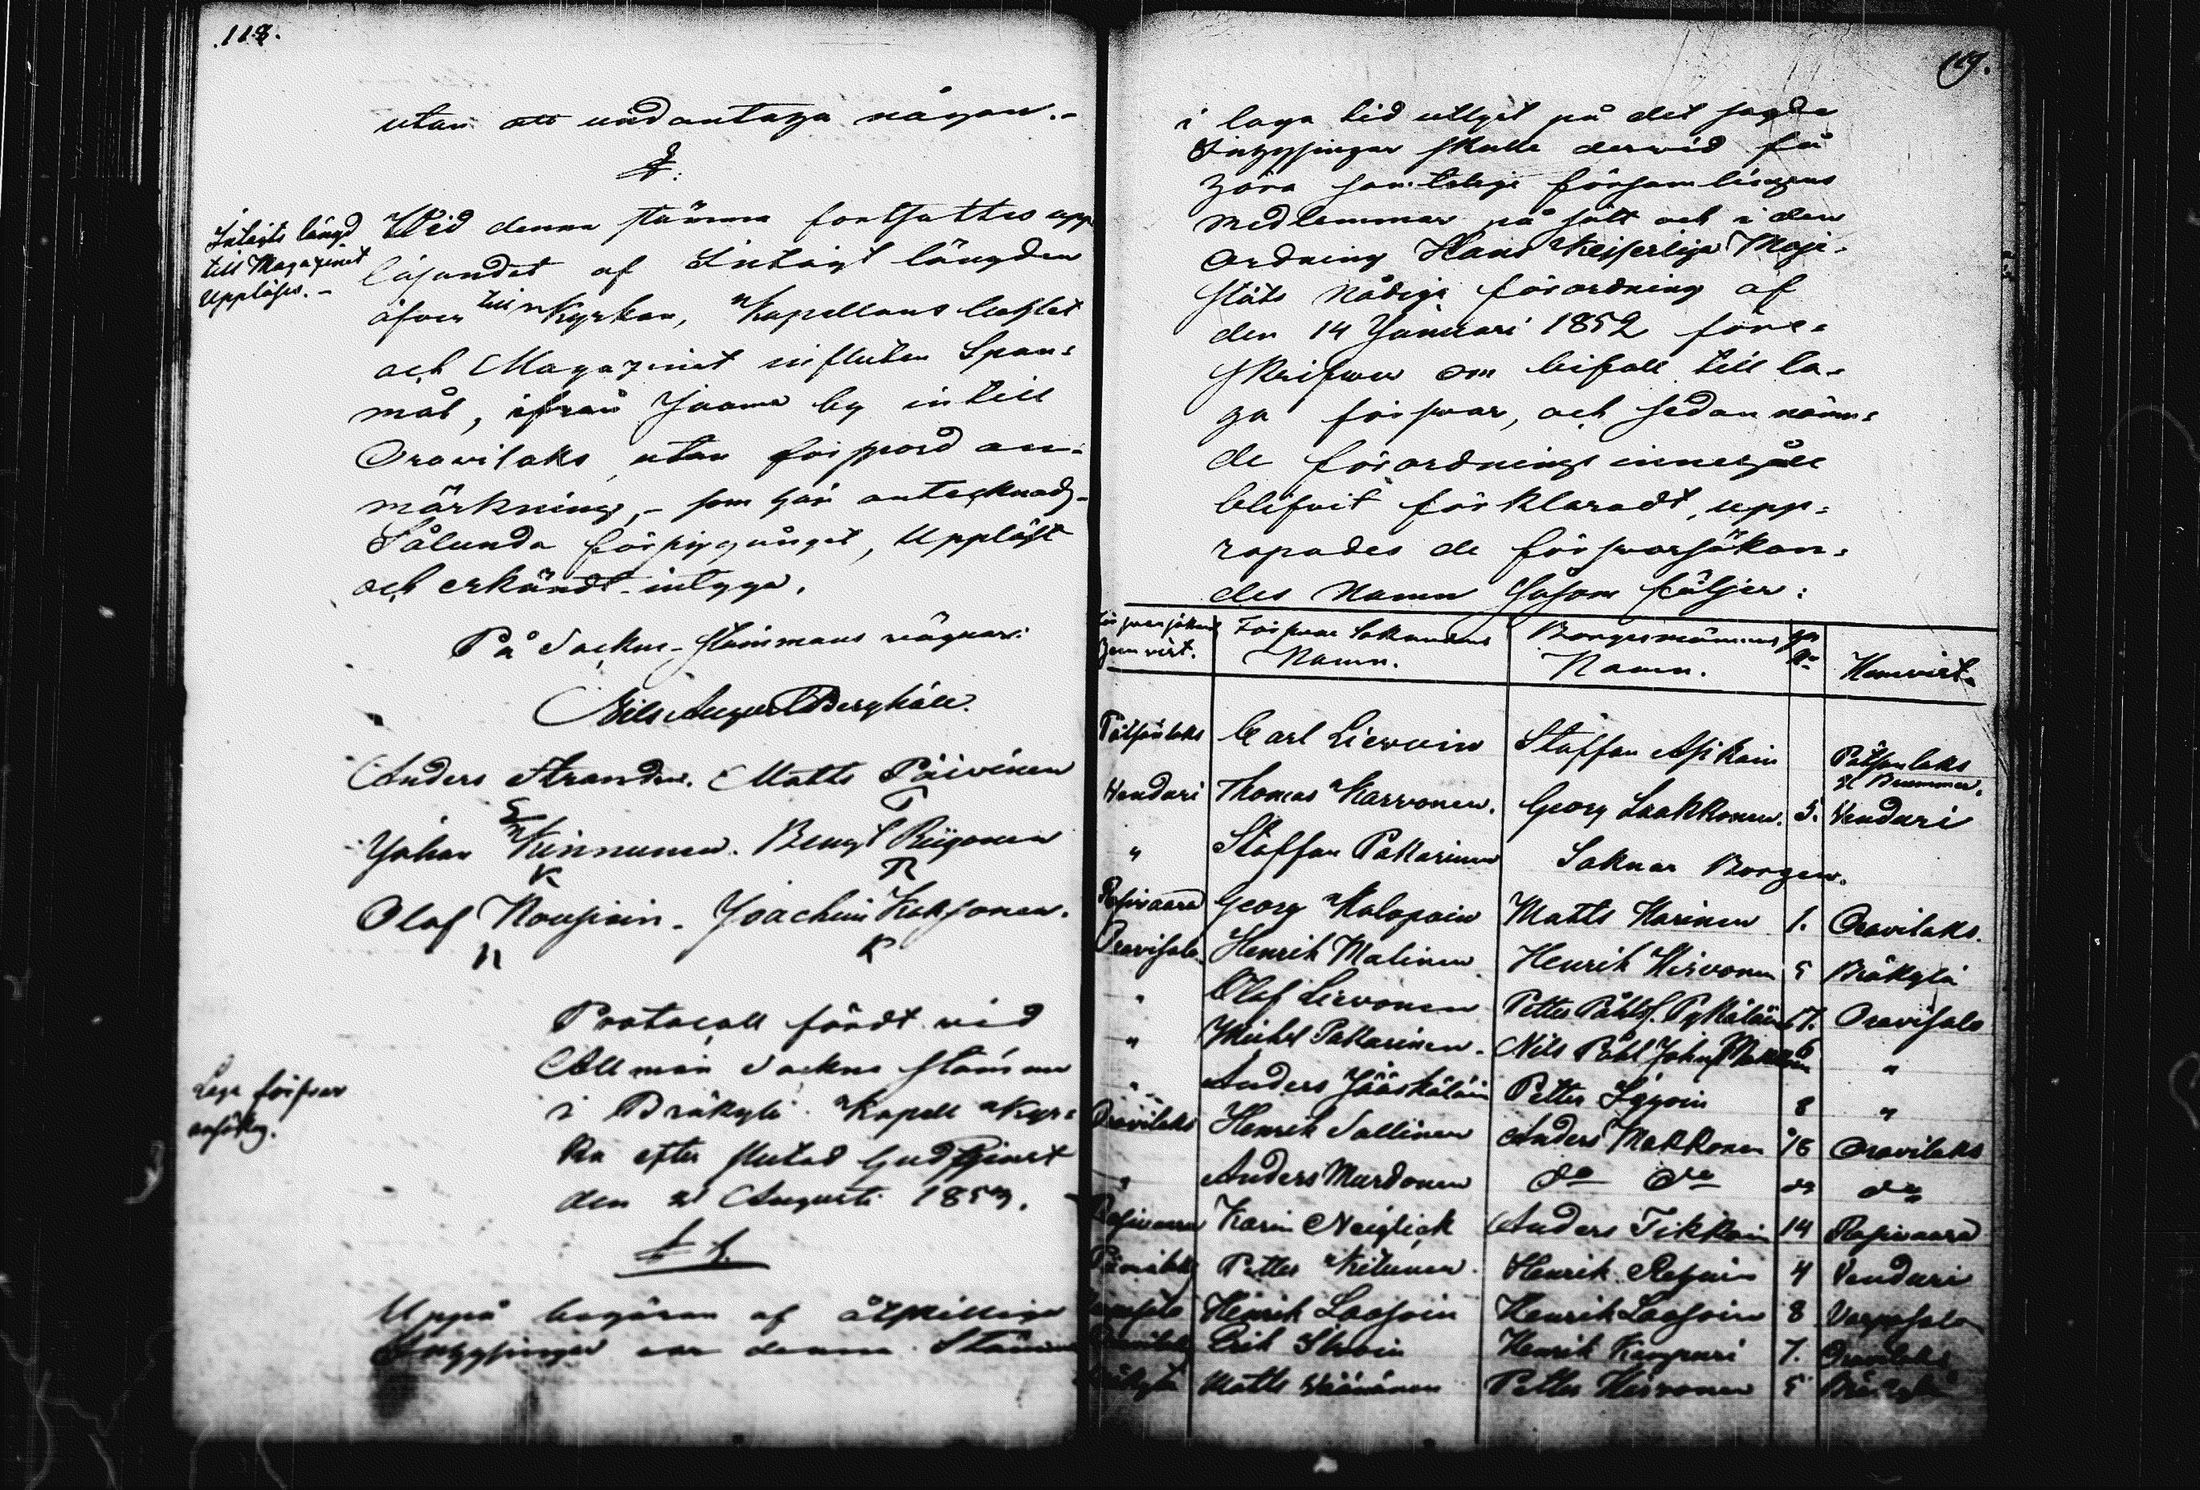 118.
utan att undantaga någon.-
§.
Intägts längd
till Magazinet
Uppläses.-
Wid denna stämma fortsattes upp
läsandet af Intägt längden
öfver till Kyrkan, Kapellans bostet
och Magazinet influten Span-
mål, ifrån Jaama by intill
Oravilaks, utan förspord an-
märkning,- som här antecknadz-
Sålunda försiggånget, Uppläst
och erkändt - intyga.
På Sockne-stämmans vägnar.
Nils August Berghäll.
Anders Strandm. Matts Päivinen
Johan Kinnunen. Bengt Riiponen
Olof Kousiain - Joachim Kokkonen.
Lega försvar
ansökng.
Protocoll fördt vid
Allmän Sockne stämma
i Bräkylä Kapell Kyr-
ka efter slutad Gudstjenst
den 21 Augusti 1853.
§ 1.
Uppå begäran af åtskillige
Inhysingar var denna Stämma
119.
i laga tid utlyst på det sagde
Inhysingar skulle dervid få
höra samtelige församlingens
medlemmar på sätt och i den
Ordning Hans Kejserliga Maje-
stäts Nådiga förordning af
den 14 Januari 1852 före-
skrifver om bifall till la-
ga försvar, och sedan nämn-
de förordnings innehåll
blifvit förklaradt, upp-
ropades de försvarsökan-
des Namn Såsom följer:
Försvarsökand Hemvist. Försvar Sökandens Namn. Borgesmännens Namn. No Hemvist.
Pätsönlaks Carl Liewoin Staffan Asikain Pätsönlaks
H Brummer.
Vendari Thomas Karvonen. Georg Laakkonen. 5. Vendari
" Staffan Pakarinen Saknar Borgen.
Rasivaara Georg Kolopain Matts Karinen 1. Oravilaks.
Oravisalo Henrik Malinen Henrik Hirvonen 5 Bräkylä
" Olof Lievonen Petter Påhls. Pykäläin 17. Oravisalo
" Michel Pakarinen. Nils Påhl Johns Makkoin 6 "
" Anders Jääskeläin Petter Igoin 8 "
Oravilaks Henrik Sallinen Anders Makkonen 16 Oravilaks
" Anders Mardonen do do do do
Rasivaara Karin Neiglick Anders Tikkain 14 Rasivaara
Petter Kitunen. Henrik 4 Vendari
Henrik Laasoin Henrik Laasoin 8 Varpasalo
Oravilaks Erik Henrik 7. Oravilaks
Bräkylä Matts Väänänen Petter Hirvonen 5 Bräkylä